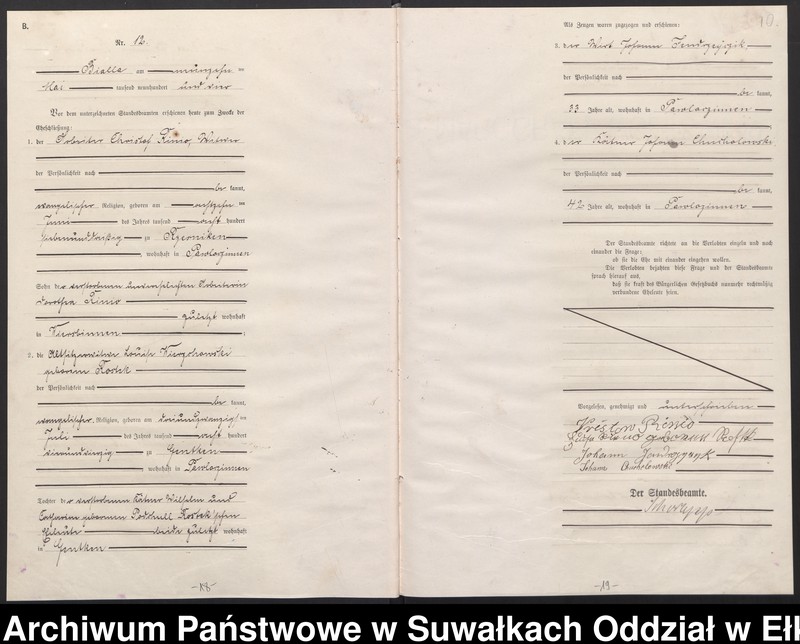 B.
Nr. 12.
Bialla am neunzehn ten
Mai tausend neunhundert und vier
Vor dem unterzeichneten Standesbeamten erschienen heute zum Zwecke der
Eheschließung:
1. der Arbeiter Christof Rimo, Witwer
der Persönlichkeit nach
be kannt,
evangelischer Religion, geboren am achtzehn ten
Juni des Jahres tausend acht hundert
siebenunddreißig zu
wohnhaft in Pawlozinnen
Sohn der verstorbenen unverehelichten Arbeiterin
Dorothea Rimo
zuletzt wohnhaft
in Wiersbinnen
2. die Altsitzerwitwe Louise
geborene Kostek
der Persönlichkeit nach
be kannt,
evangelischer Religion, geboren am dreiundzwanzigs ten
Juli des Jahres tausend acht hundert
vierundvierzig zu Gentken
wohnhaft in Pawlozinnen
Tochter der verstorbenen Kätner Wilhelm und
Catharina geborenen Kostek'schen
Eheleute beide zuletzt wohnhaft
in Gentken
-18-
10.
Als Zeugen waren zugezogen und erschienen:
3. der Wirt Johann
der Persönlichkeit nach
be kannt,
33 Jahre alt, wohnhaft in Pawlozinnen
4. der Kätner Johann Chucholowski
der Persönlichkeit nach
be kannt,
42 Jahre alt, wohnhaft in Pawlozinnen
Der Standesbeamte richtete an die Verlobten einzeln und nach
einander die Frage:
ob sie die Ehe mit einander eingehen wollen.
Die Verlobten bejahten diese Frage und der Standesbeamte
sprach hierauf aus,
daß sie kraft des Bürgerlichen Gesetzbuchs nunmehr rechtmäßig
verbundene Eheleute seien.
Vorgelesen, genehmigt und unterschrieben
geborene
Johann
Johann Chucholowski
Der Standesbeamte.
-19-
Archiwum Państwowe w Suwałkach Oddział w Eł